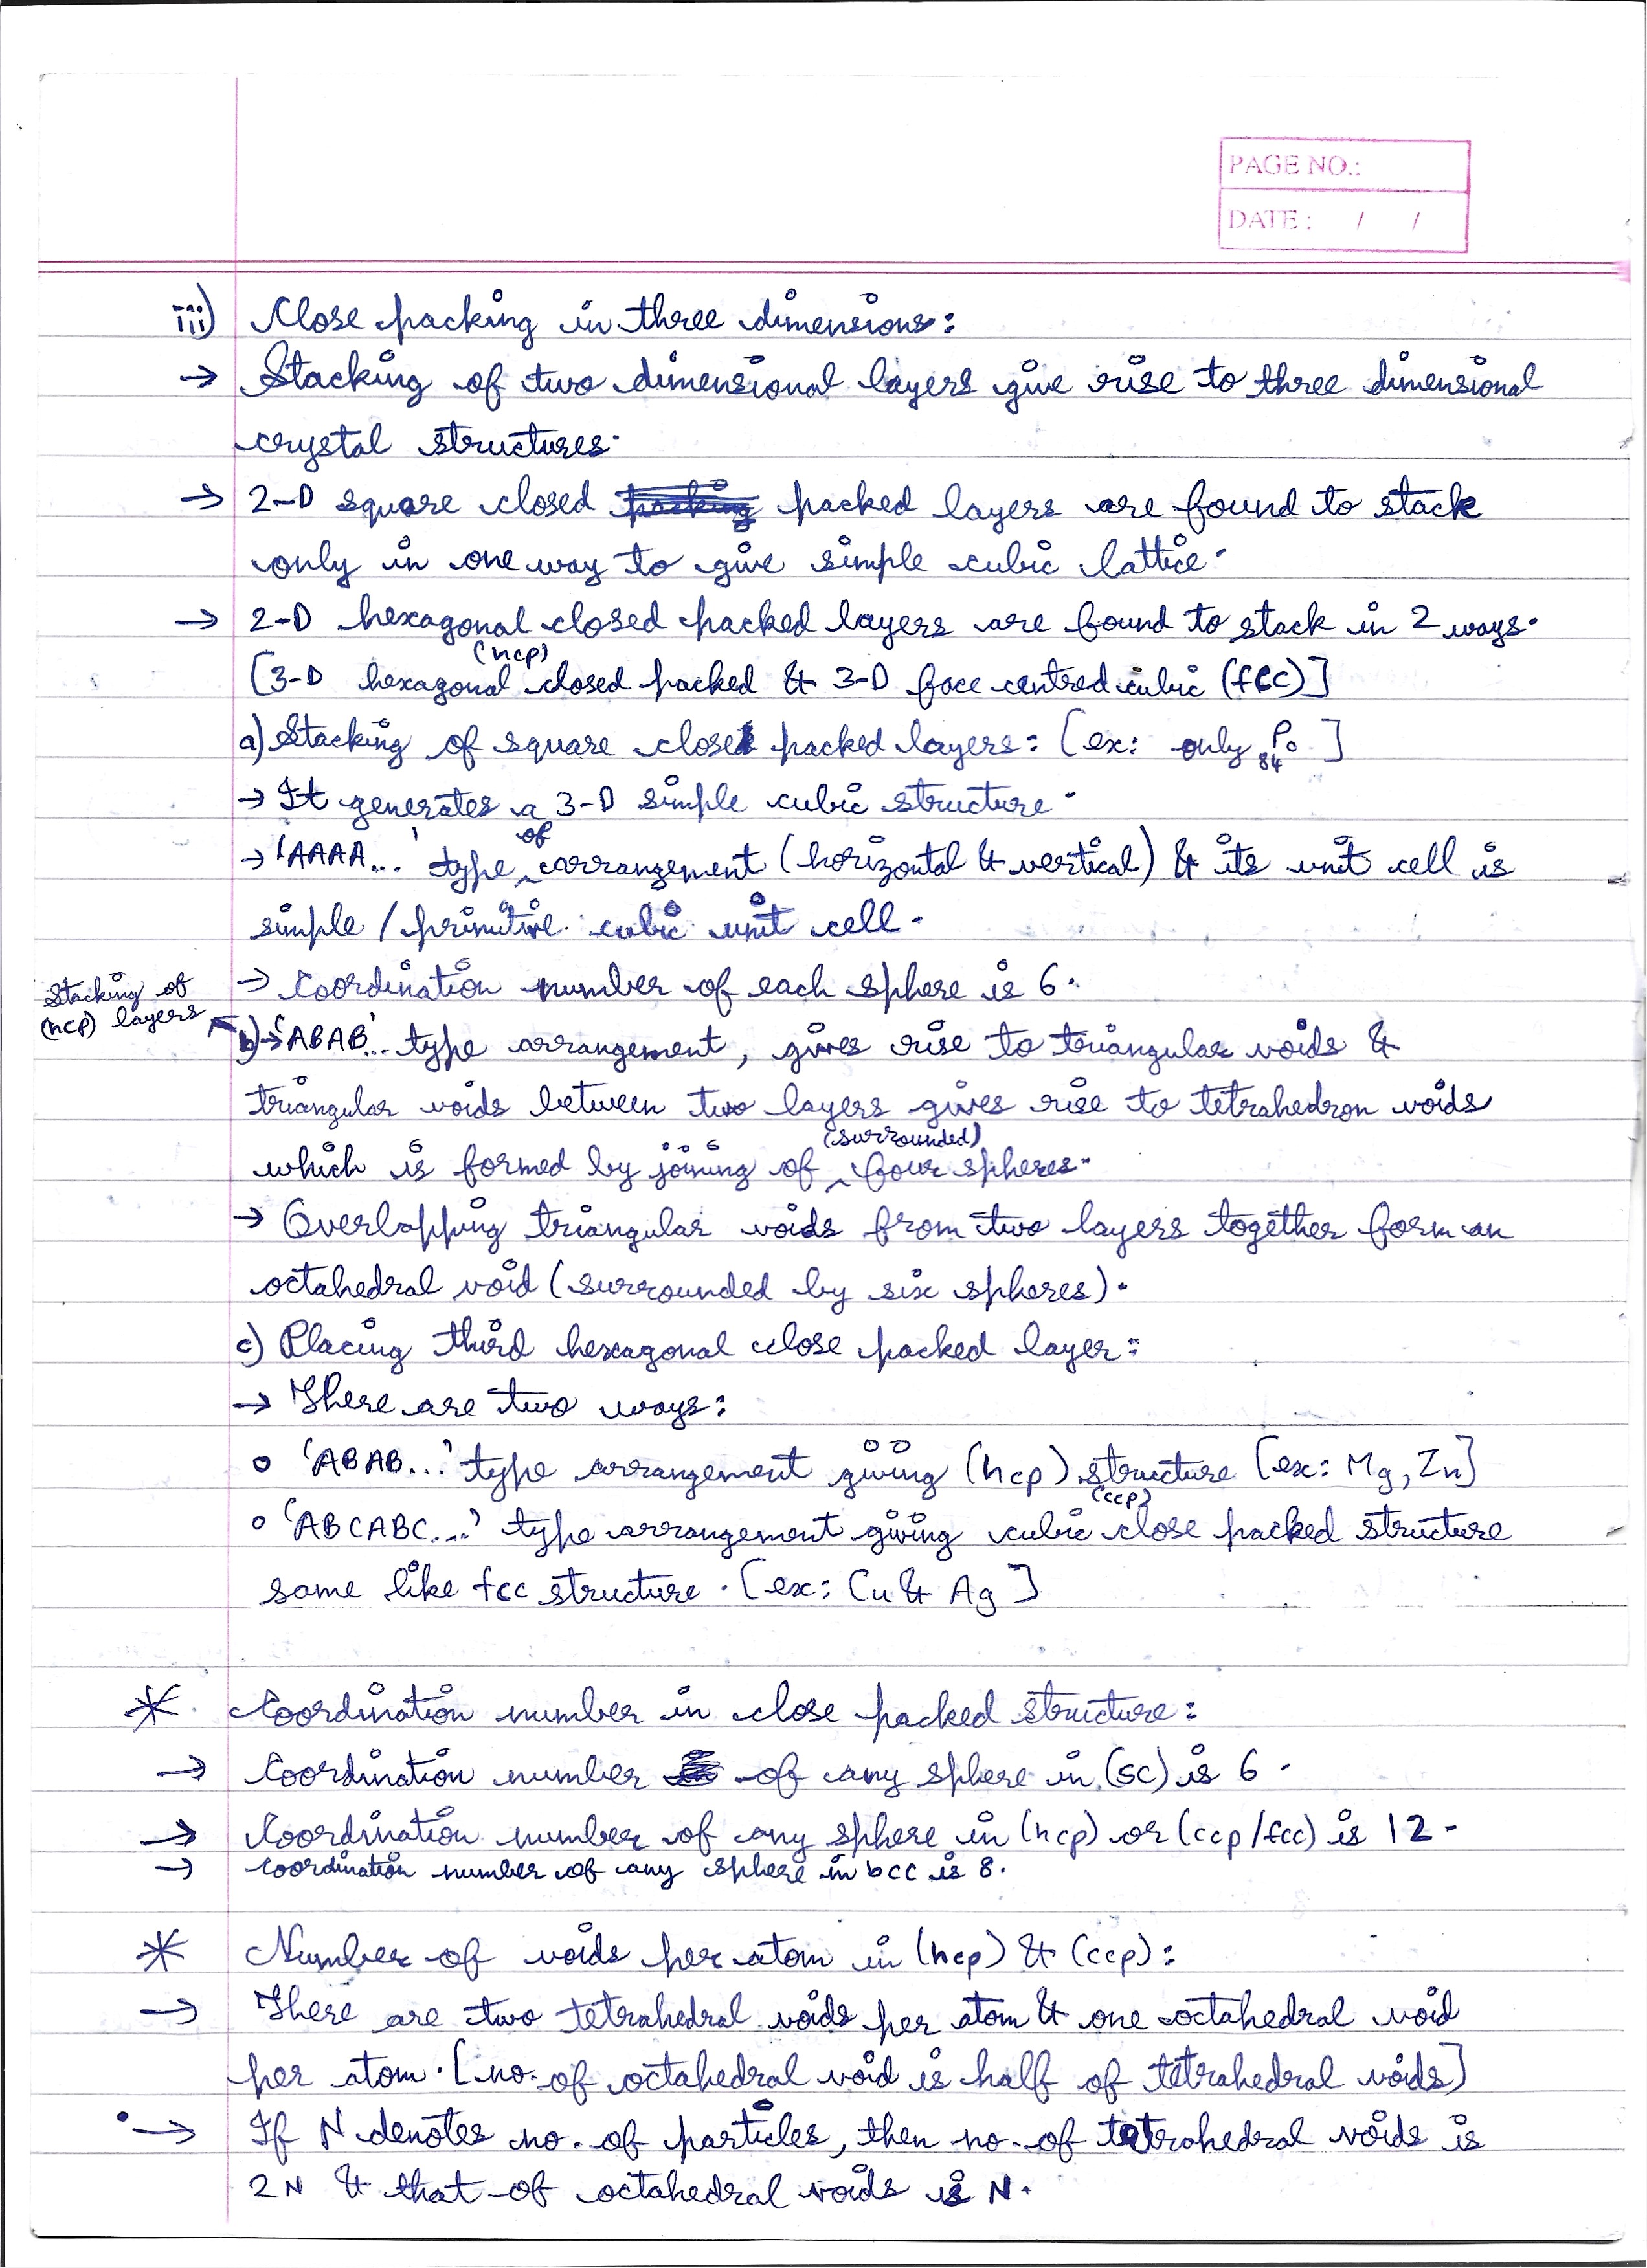 PAGE NO.:
DATE : / /
iii) Close packing in three dimensions:
→ Stacking of two dimensional layers give rise to three dimensional
crystal structures.
→ 2-D square closed packed layers are found to stack
only in one way to give simple cubic lattice.
→ 2-D hexagonal closed packed layers are found to stack in 2 ways.
[3-D hexagonal (hcp) closed packed & 3-D face centred cubic (fcc)]
a) Stacking of square close packed layers: [ex: only ₈₄Po ]
→ It generates a 3-D simple cubic structure.
→ 'AAAA...' type of arrangement (horizontal & vertical) & its unit cell is
simple / primitive cubic unit cell.
→ Coordination number of each sphere is 6.
Stacking of
(hcp) layers
b) → 'ABAB'... type arrangement, gives rise to triangular voids &
triangular voids between two layers gives rise to tetrahedron voids
which is formed by joining of (surrounded) four spheres.
→ Overlapping triangular voids from two layers together form an
octahedral void (surrounded by six spheres).
c) Placing third hexagonal close packed layer:
→ There are two ways:
o 'ABAB...' type arrangement giving (hcp) structure [ex: Mg, Zn]
o 'ABCABC...' type arrangement giving cubic (ccp) close packed structure
same like fcc structure. [ex: Cu & Ag]
* Coordination number in close packed structure:
→ Coordination number of any sphere in (sc) is 6.
→ Coordination number of any sphere in (hcp) or (ccp/fcc) is 12.
→ Coordination number of any sphere in bcc is 8.
* Number of voids per atom in (hcp) & (ccp):
→ There are two tetrahedral voids per atom & one octahedral void
per atom. [no. of octahedral void is half of tetrahedral voids]
• → If N denotes no. of particles, then no. of tetrahedral voids is
2N & that of octahedral voids is N.